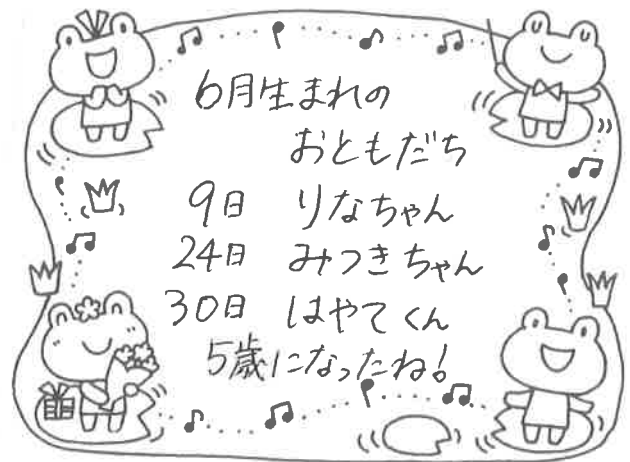 6月生まれの
おともだち
9日 りなちゃん
24日 みつきちゃん
30日 はやてくん
5歳になったね!